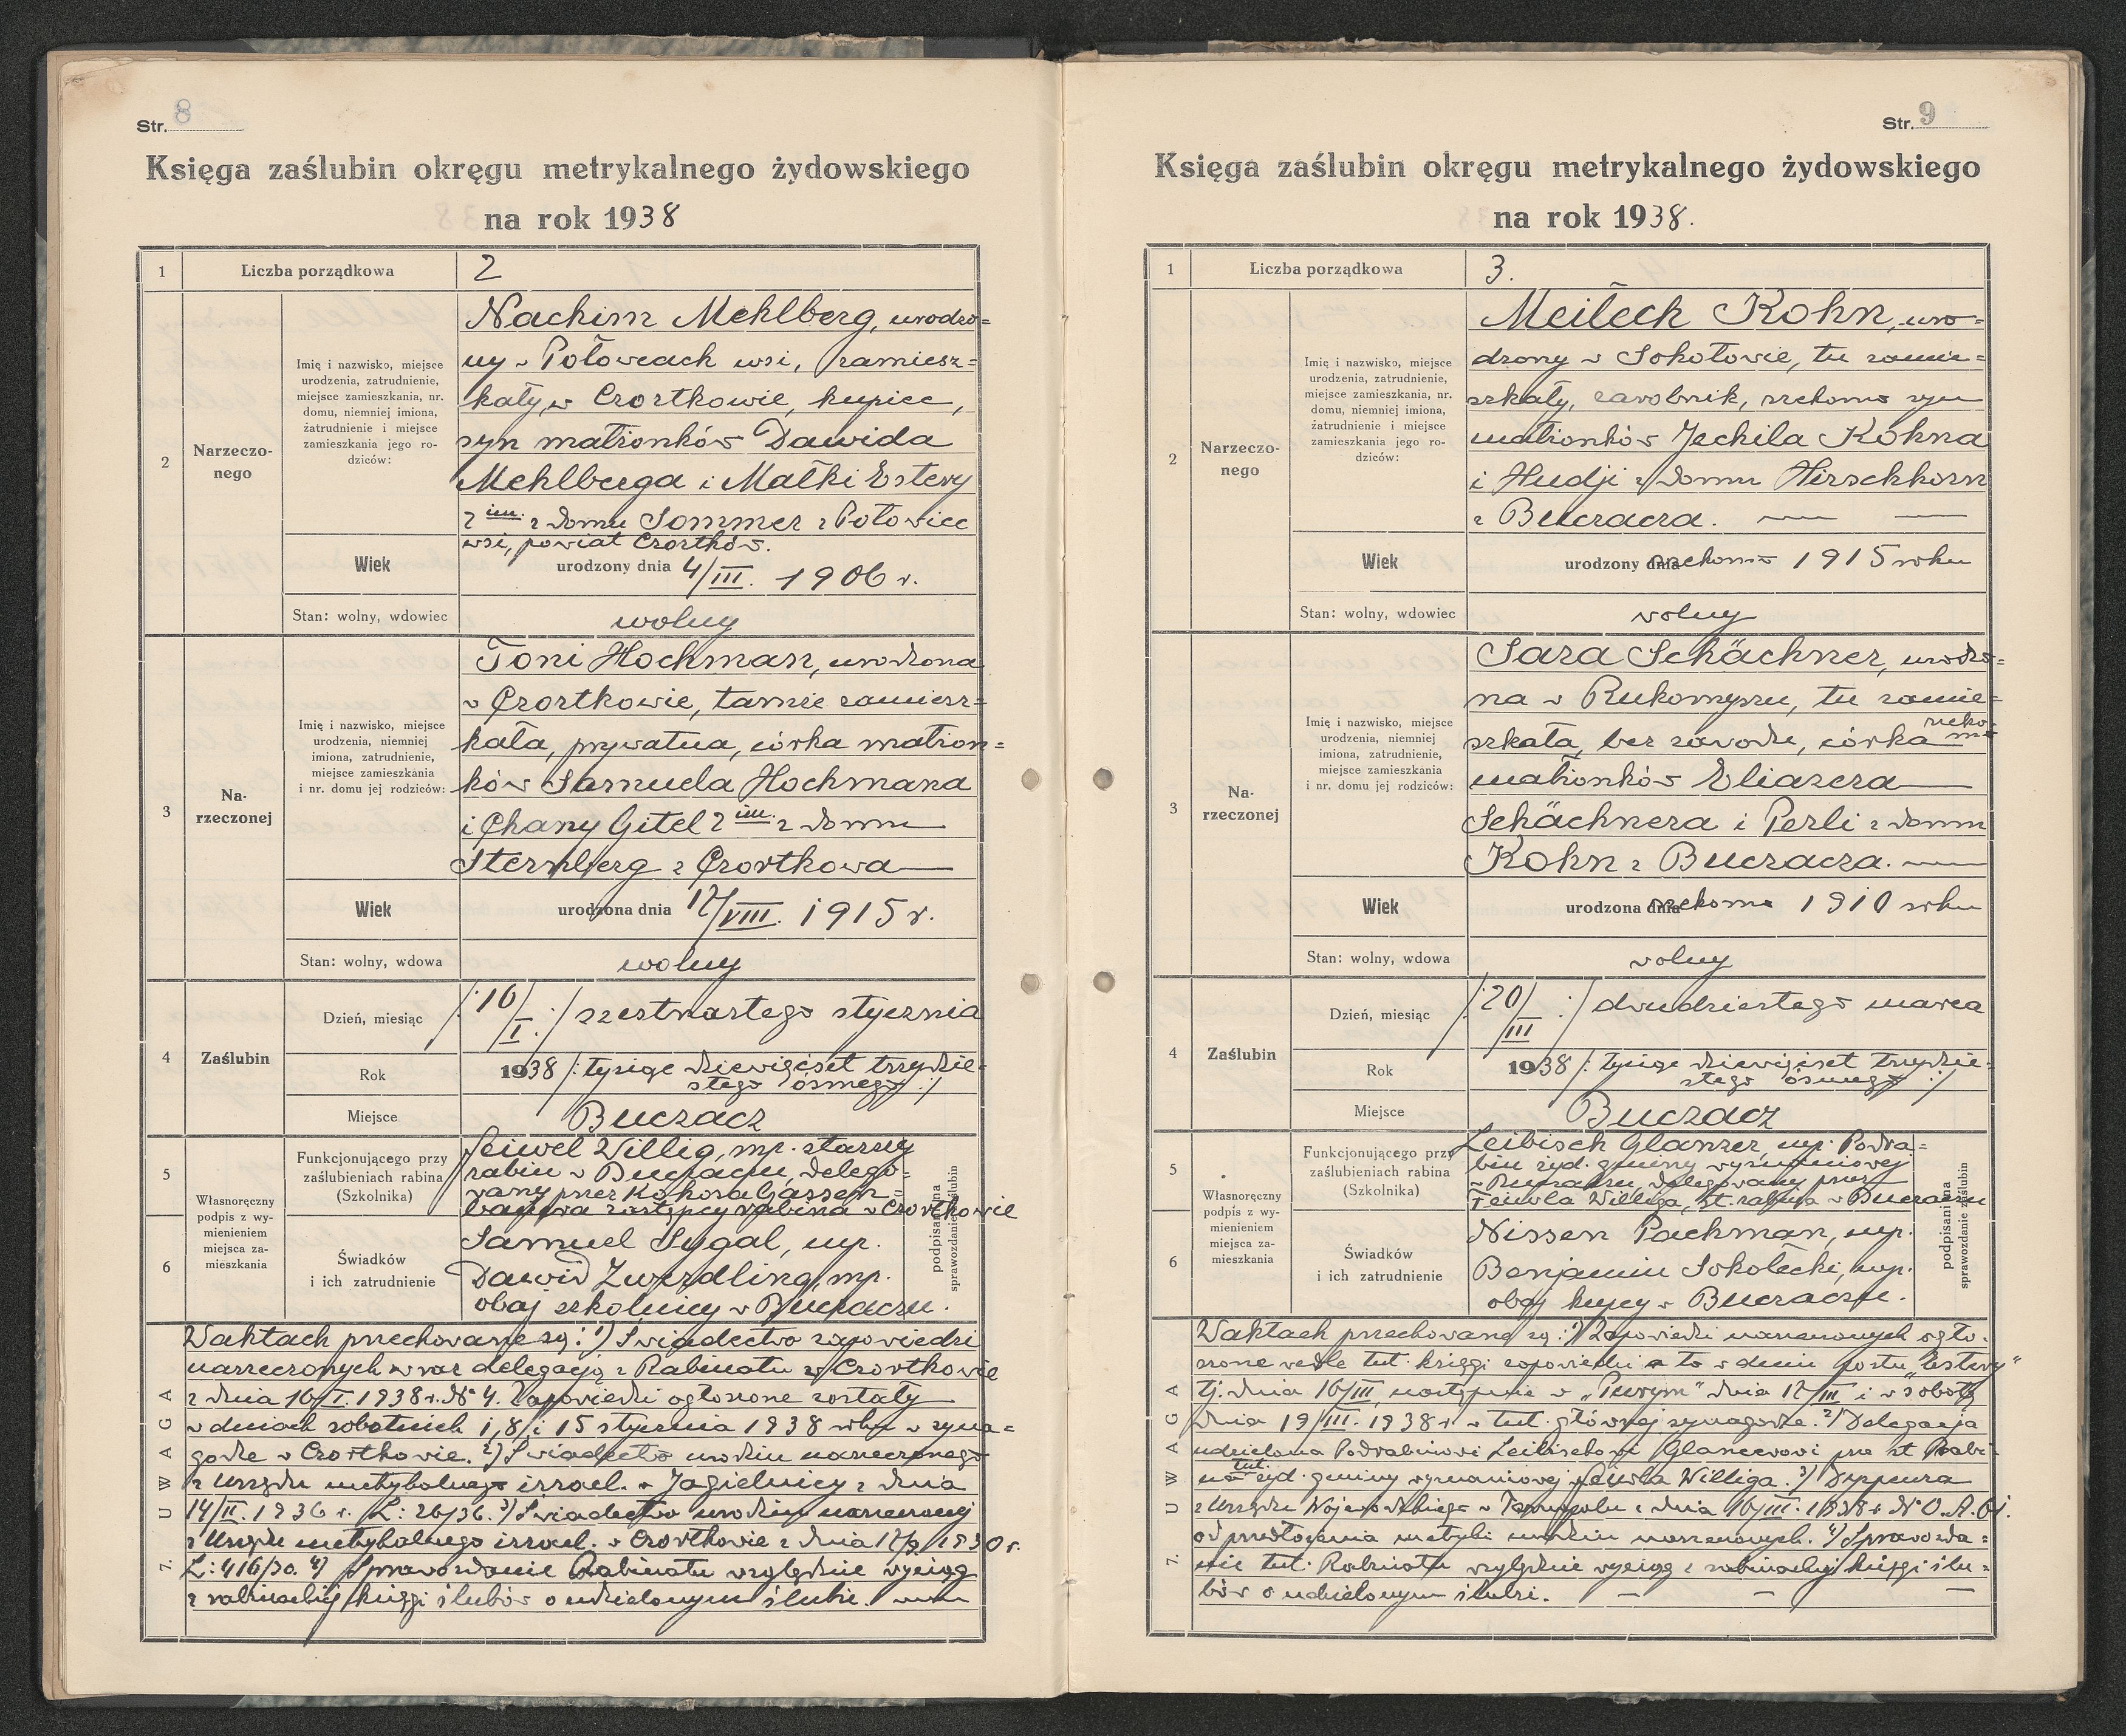 Str. 8
Księga zaślubin okręgu metrykalnego żydowskiego
na rok 1938
1 Liczba porządkowa 2
2 Narzeczo-
nego
Imię i nazwisko, miejsce
urodzenia, zatrudnienie,
miejsce zamieszkania, nr.
domu, niemniej imiona,
żatrudnienie i miejsce
zamieszkania jego ro-
dziców:
Nachim Mehlberg, urodzo=
ny w Połowcach wsi, zamiesz=
kały w Czortkowie, kupiec,
syn małżonków Dawida
Mehlberga i Małki Estery
2 im. z domu Sommer z Połowiec
wsi, powiat Czortków.
Wiek urodzony dnia 4/III. 1906 r.
Stan: wolny, wdowiec wolny
3 Na-
rzeczonej
Imię i nazwisko, miejsce
urodzenia, niemniej
imiona, zatrudnienie,
miejsce zamieszkania
i nr. domu jej rodziców:
Toni Hochman, urodzona
w Czortkowie, tamże zamiesz=
kała, prywatna, córka małżon=
ków Samuela Hochmana
i Chany Gitel 2 im. z domu
Sternberg z Czortkowa
Wiek urodzona dnia 12/VIII. 1915 r.
Stan: wolny, wdowa wolny
4 Zaślubin
Dzień, miesiąc /:16/I.:/ szestnastego stycznia
Rok 1938 /: tysiąc dziewięćset trzydzie-
stego ósmego :/
Miejsce Buczacz
5
6
Własnoręczny
podpis z wy-
mienieniem
miejsca za-
mieszkania
Funkcjonującego przy
zaślubieniach rabina
(Szkolnika)
Feiwel Willig, mp. starszy
rabin w Buczaczu, delego=
wany przez
zastępcy rabina w Czortkowie
Świadków
i ich zatrudnienie
Samuel Sygal, mp.
Dawid Zwerdling, mp.
obaj szkolnicy w Buczaczu.
podpisani na
sprawozdaniu zaślubin
7. UWAGA
W aktach przechowane są: 1) Świadectwo zapowiedzi
narzeczonych wraz delegacją z Rabinatu w Czortkowie
z dnia 16/I. 1938 r. № 4. Zapowiedzi ogłoszone zostały
w dniach sobotnich 1, 8, i 15 stycznia 1938 roku w syna=
godze w Czortkowie. 2) Świadectwo urodzin narzeczonego
z Urzędu metrykalnego izrael. w Jagielnicy z dnia
14/II. 1936 r. L: 26/36. 3) Świadectwo urodzin narzeczonej
z Urzędu metrykalnego izrael. w Czortkowie z dnia 1930 r.
L: 416/30. 4) Sprawozdanie Rabinatu względnie wyciąg
z rabinackiej księgi ślubów o udzielonym ślubie.
Str. 9
Księga zaślubin okręgu metrykalnego żydowskiego
na rok 1938.
1 Liczba porządkowa 3.
2 Narzeczo-
nego
Imię i nazwisko, miejsce
urodzenia, zatrudnienie,
miejsce zamieszkania, nr.
domu, niemniej imiona,
żatrudnienie i miejsce
zamieszkania jego ro-
dziców:
Meilech Kohn, uro=
dzony w Sokołowie, tu zamie=
szkały, zarobnik, rzekomo syn
małżonków Jechila Kohna
i Hudji z domu Hirschhorn
z Buczacza.
Wiek urodzony dnia rzekomo 1915 roku
Stan: wolny, wdowiec wolny
3 Na-
rzeczonej
Imię i nazwisko, miejsce
urodzenia, niemniej
imiona, zatrudnienie,
miejsce zamieszkania
i nr. domu jej rodziców:
Sara Schächner, urodzo=
na w Rukomyszu, tu zamie=
szkała, bez zawodu, córka rzeko-
mo
małżonków Eliazera
Schächnera i Perli z domu
Kohn z Buczacza.
Wiek urodzona dnia rzekomo 1910 roku
Stan: wolny, wdowa wolny
4 Zaślubin
Dzień, miesiąc /:20/III:/ dwudziestego marca
Rok 1938 /: tysiąc dziewięćset trzydzie-
stego ósmego :/
Miejsce Buczacz
5
6
Własnoręczny
podpis z wy-
mienieniem
miejsca za-
mieszkania
Funkcjonującego przy
zaślubieniach rabina
(Szkolnika)
Leibisch Glanzer, mp. Podra=
bin żyd. gminy wyznaniowej
w Buczaczu, delegowany przez
Feiwla Williga, st. rabina w Buczaczu
Świadków
i ich zatrudnienie
Nissen Pachman, mp.
Benjamin Sokolecki, mp.
obaj kupcy w Buczaczu.
podpisani na
sprawozdanie zaślubin
7. UWAGA
W aktach przechowane są: 1) Zapowiedzi narzeczonych ogło-
szone wedle tut. księgi zapowiedzi a to w dniu postu "Estery"
tj. dnia 16/III, następnie w "Purym" dnia 17/III i w sobotę
dnia 19/III. 1938 r. w tut. głównej synagodze. 2) Delegacja
udzielona Podrabinowi Leibischowi Glanzerowi prze st. Rabi-
na tut. żyd. gminy wyznaniowej Feiwla Williga. 3) Dyspenza
z Urzędu Wojewódzkiego w Tarnopolu z dnia 16/III. 1938 r. № O.A.
od przedłożenia metryki urodzin narzeczonych. 4) Sprawozda=
nie tut. Rabinatu względnie wyciąg z rabinackiej księgi ślu=
bów o udzielonym ślubie.